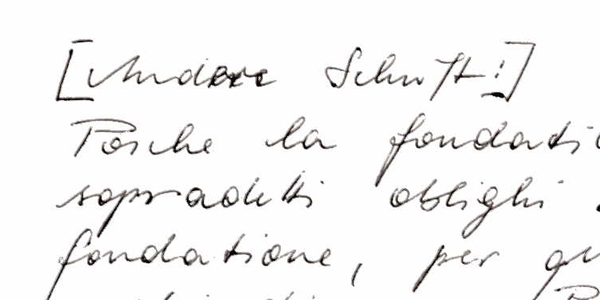 [Andere Schrift:]
Posche la fondati
sopradetti oblighi
fondatione, per qu